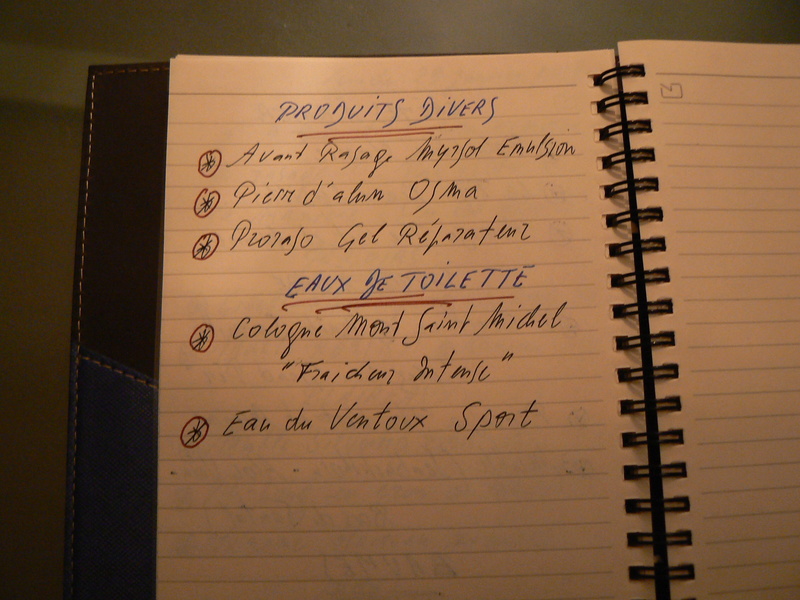 PRODUITS DIVERS
Avant Rasage Myrsol Emulsion
Pierre d'alun Osma
Proraso Gel Réparateur
EAUX DE TOILETTE
Cologne Mont Saint Michel
"Fraicheur Intense"
Eau du Ventoux Sport